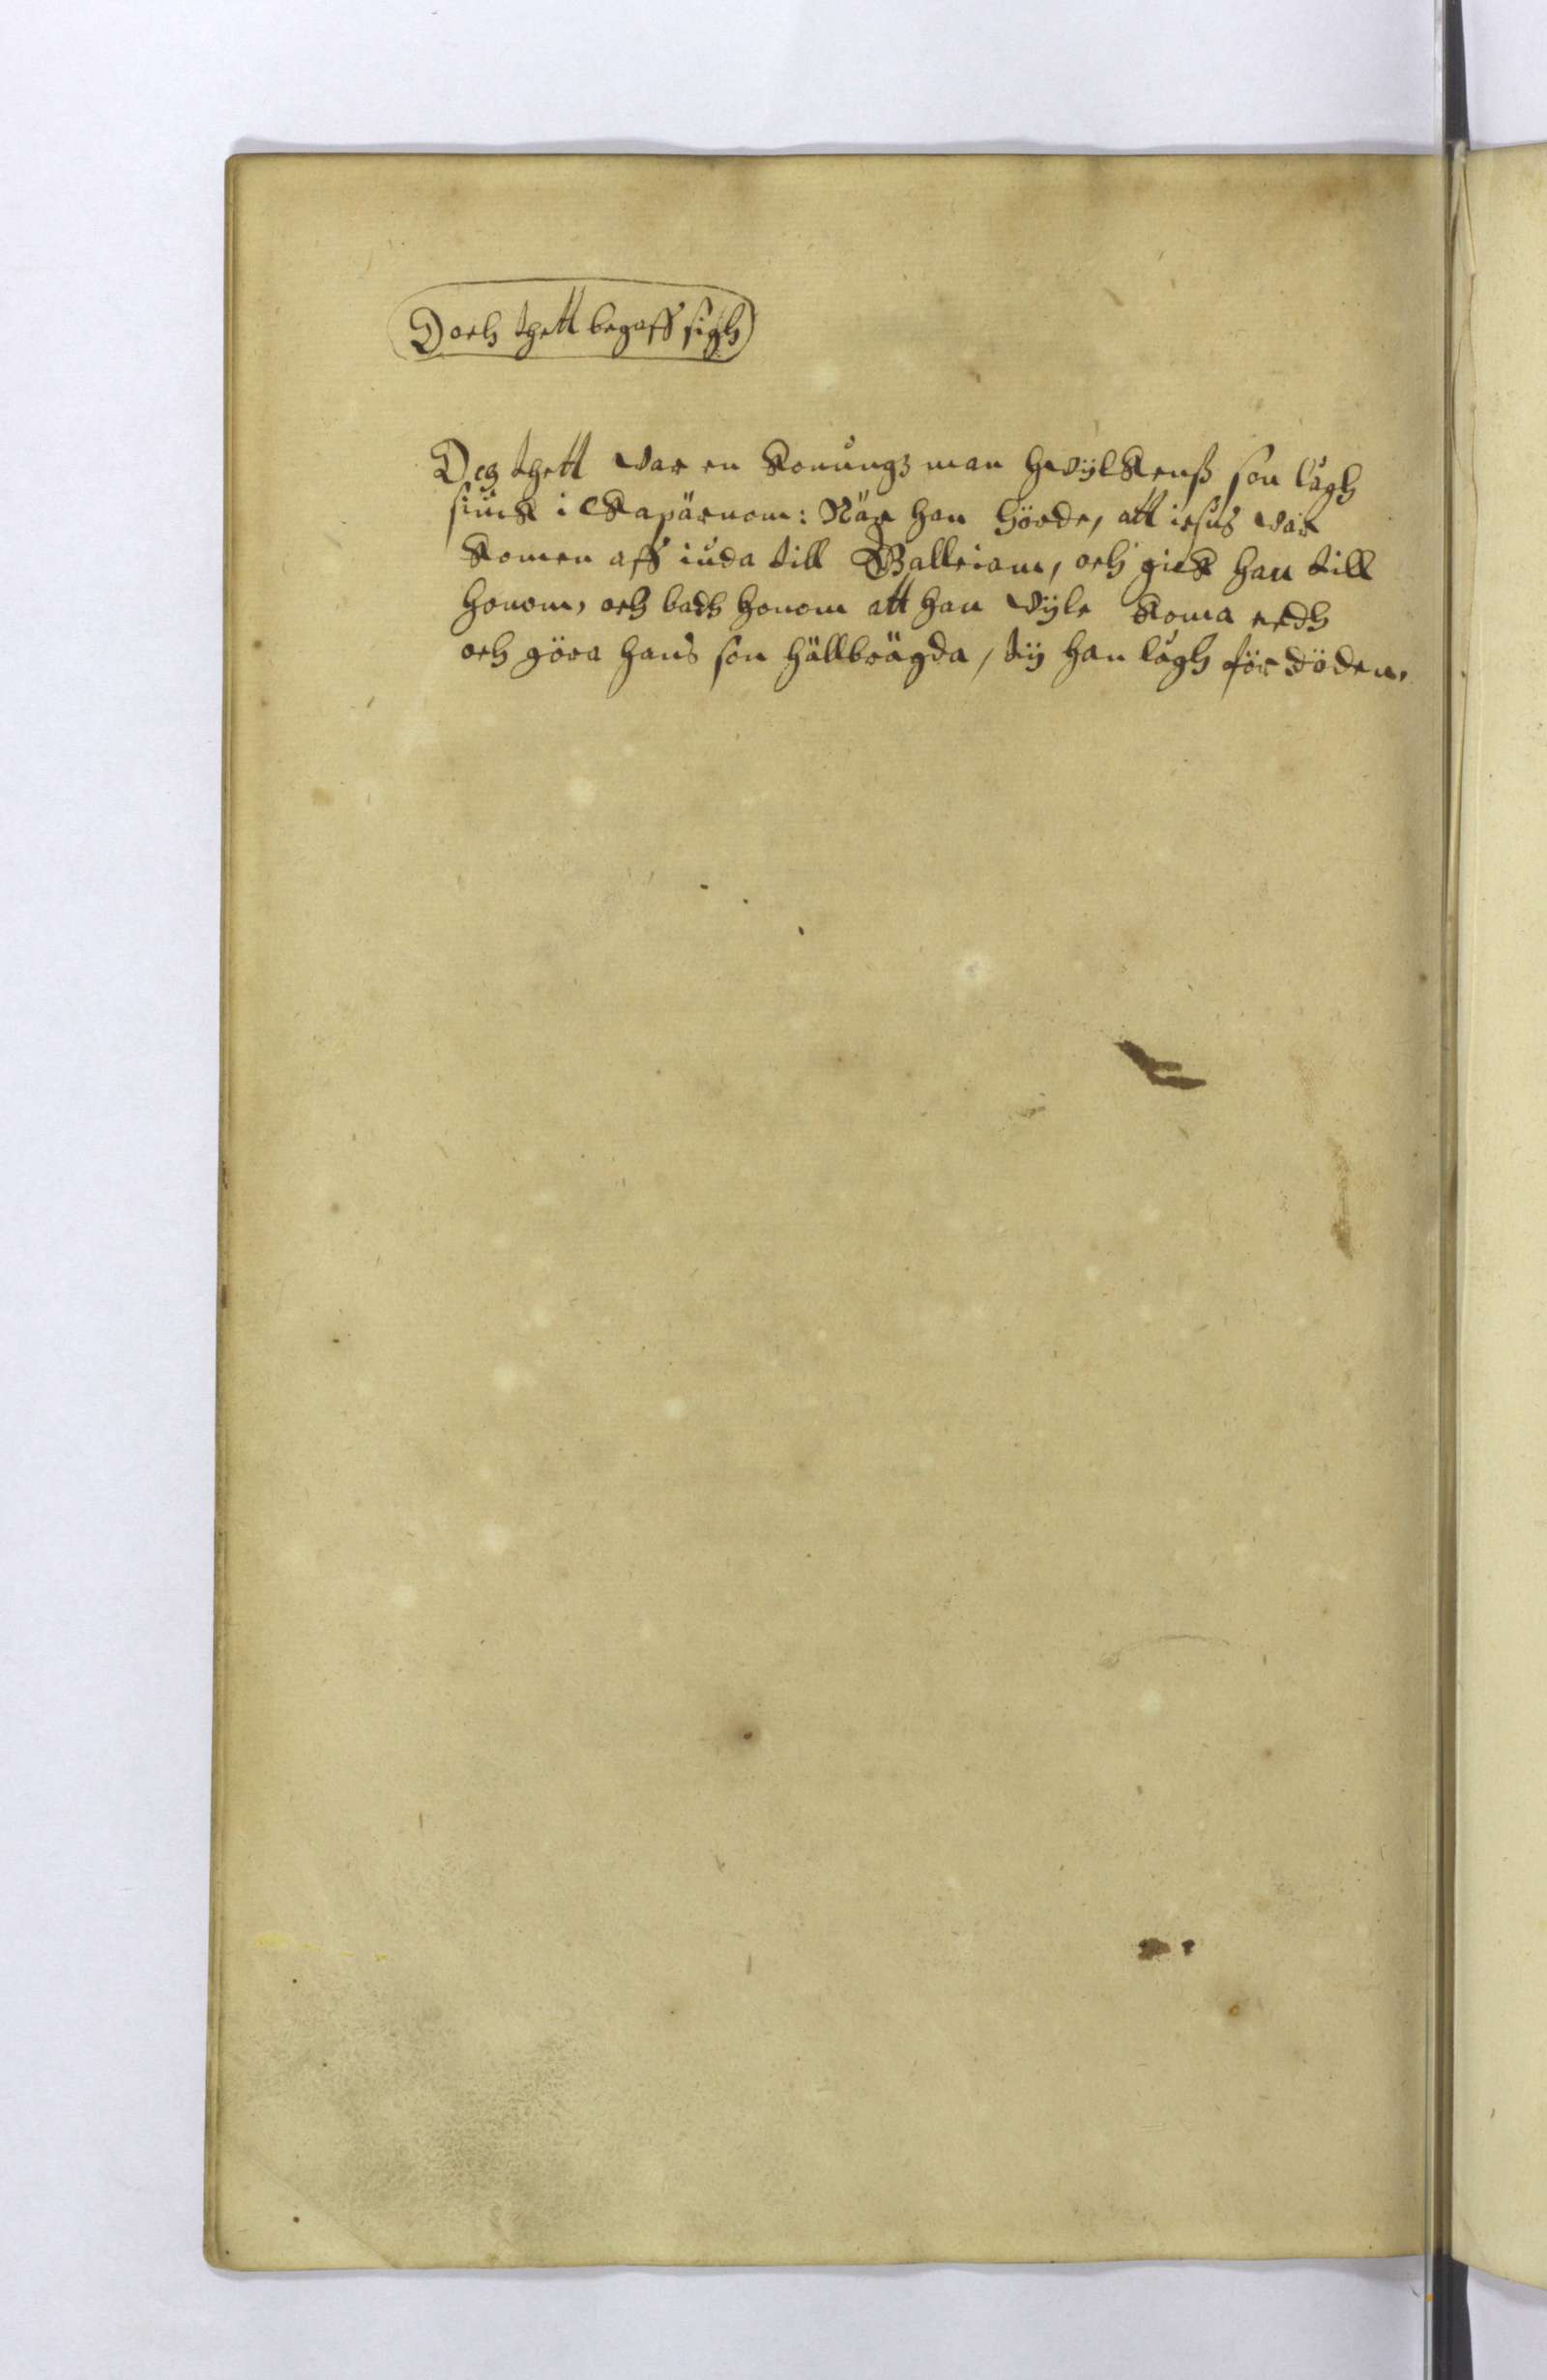 Doch thett begaff sigh
Och thett var en Konungz man hvylkenß son lågh
siuck i Ckapärnom: När han hörde, att iesus var
komen aff iuda till Galleiam, och gick han till
honom, och badh honom att han vyle koma nedh
och göra hans son hällbrägda, ty han lågh för döden.